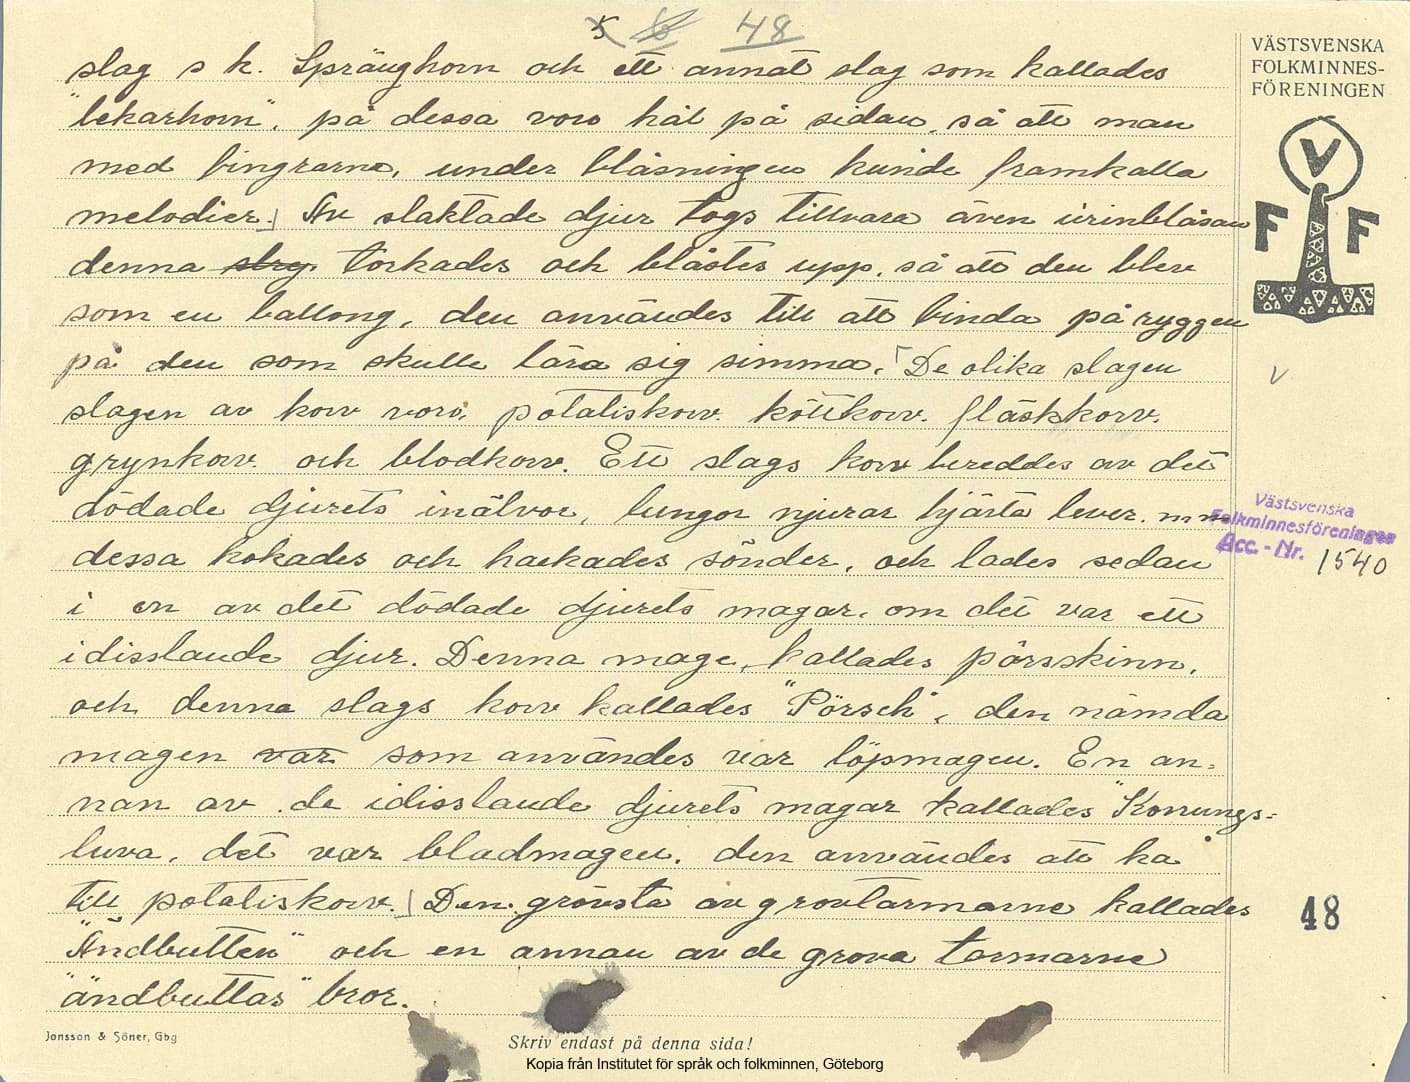 5 6 48
slag s k. Spränghorn och ett annat slag som kallades
"lekarhorn", på dessa voro hål på sidan, så att man
med fingrarne, under blåsningen kunde framkalla
melodier.] Av slaktade djur togs tillvara även urinblåsan
denna torkades och blåstes upp, så att den blev
som en ballong, den användes till att binda på ryggen
på den som skulle lära sig simma. [De olika slagen
slagen av korv voro, potatiskorv. köttkorv. fläskkorv.
grynkorv. och blodkorv. Ett slags korv bereddes av det
dödade djurets inälvor, lungor njurar hjärta lever. m m
dessa kokades och hackades sönder, och lades sedan
i en av det dödade djurets magar, om det var ett
idisslande djur. Denna mage, kallades pörsskinn,
och denna slags korv kallades "Pörsch", den nämda
magen var som användes var löpmagen. En an=
nan av de idisslande djurets magar kallades "Konungs=
luva, det var bladmagen. den användes att ha
till potatiskorv.] Den grövsta av grovtarmarne kallades
"Ändbutten" och en annan av de grova tarmarne
"ändbuttas" bror.
VÄSTSVENSKA
FOLKMINNES-
FÖRENINGEN
V
F F
V
Västsvenska
Folkminnesföreningen
Acc. - Nr. 1540
48
Jonsson & Söner, Gbg
Skriv endast på denna sida!
Kopia från Institutet för språk och folkminnen, Göteborg